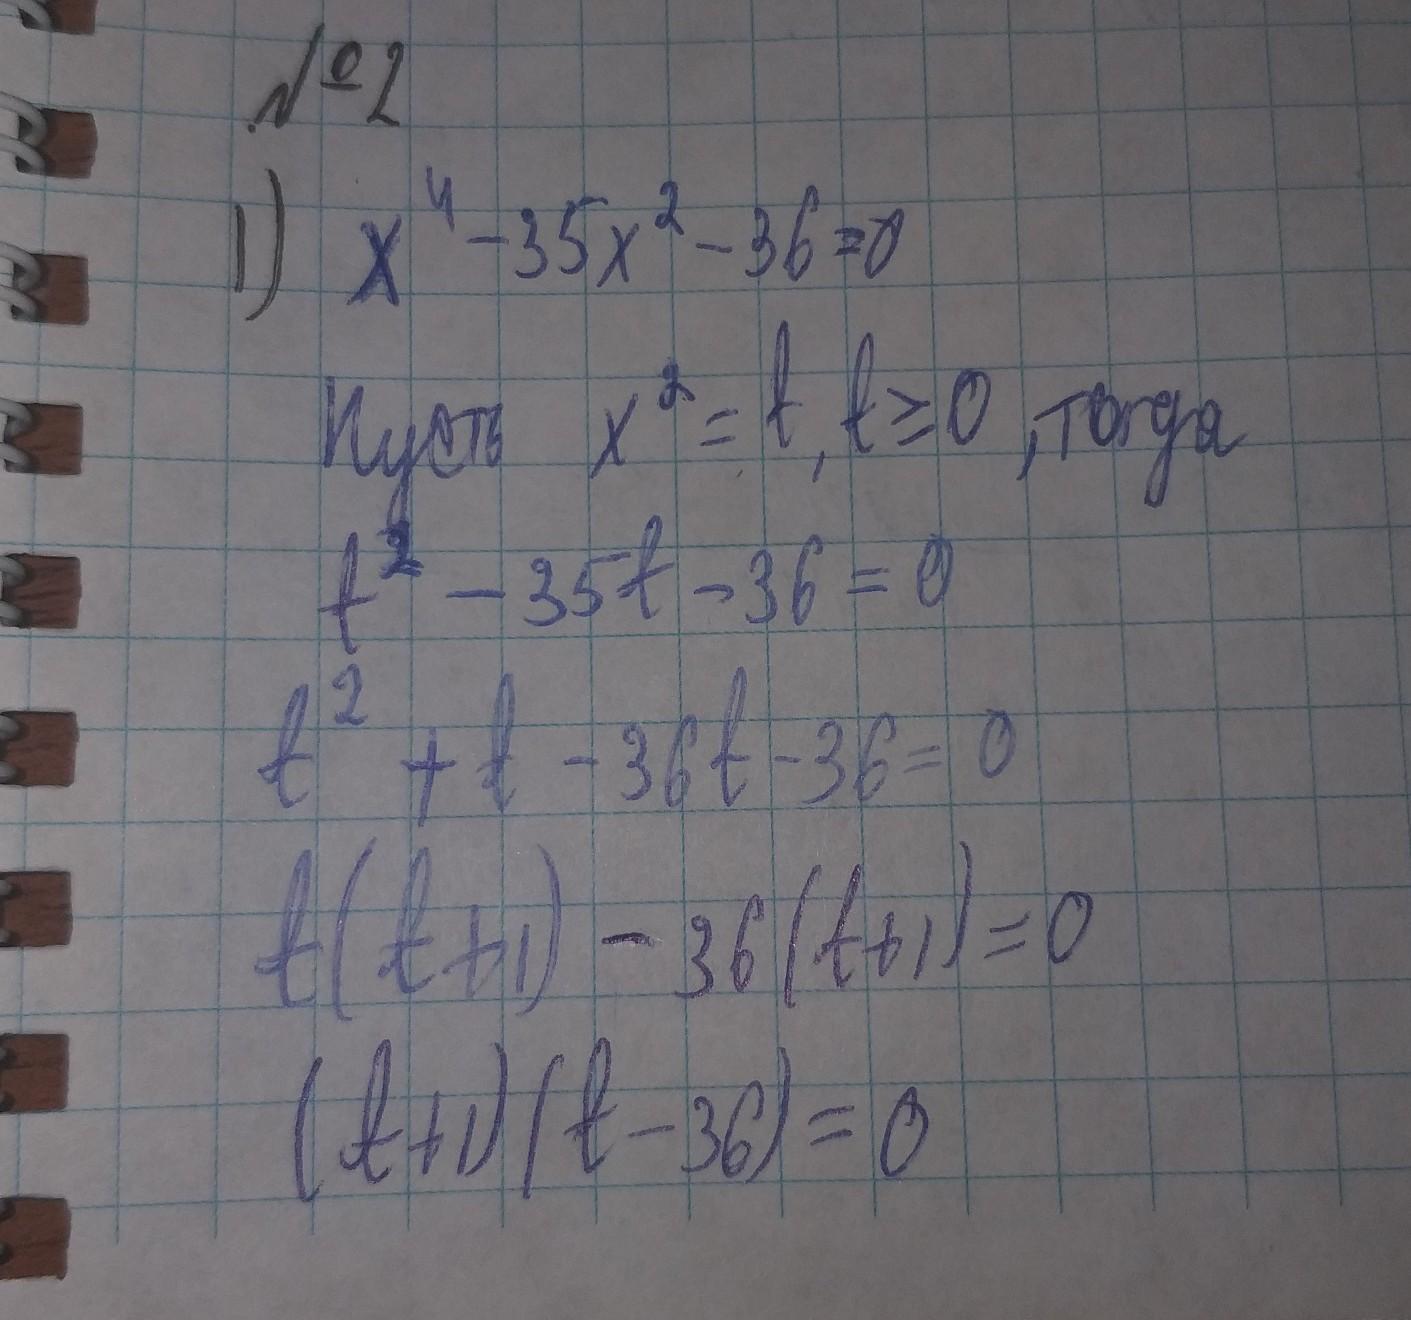 №2
1) x⁴ - 35x² - 36 = 0
Пусть x² = t, t ≥ 0, тогда
t² - 35t - 36 = 0
t² + t - 36t - 36 = 0
t(t+1) - 36(t+1) = 0
(t+1)(t-36) = 0